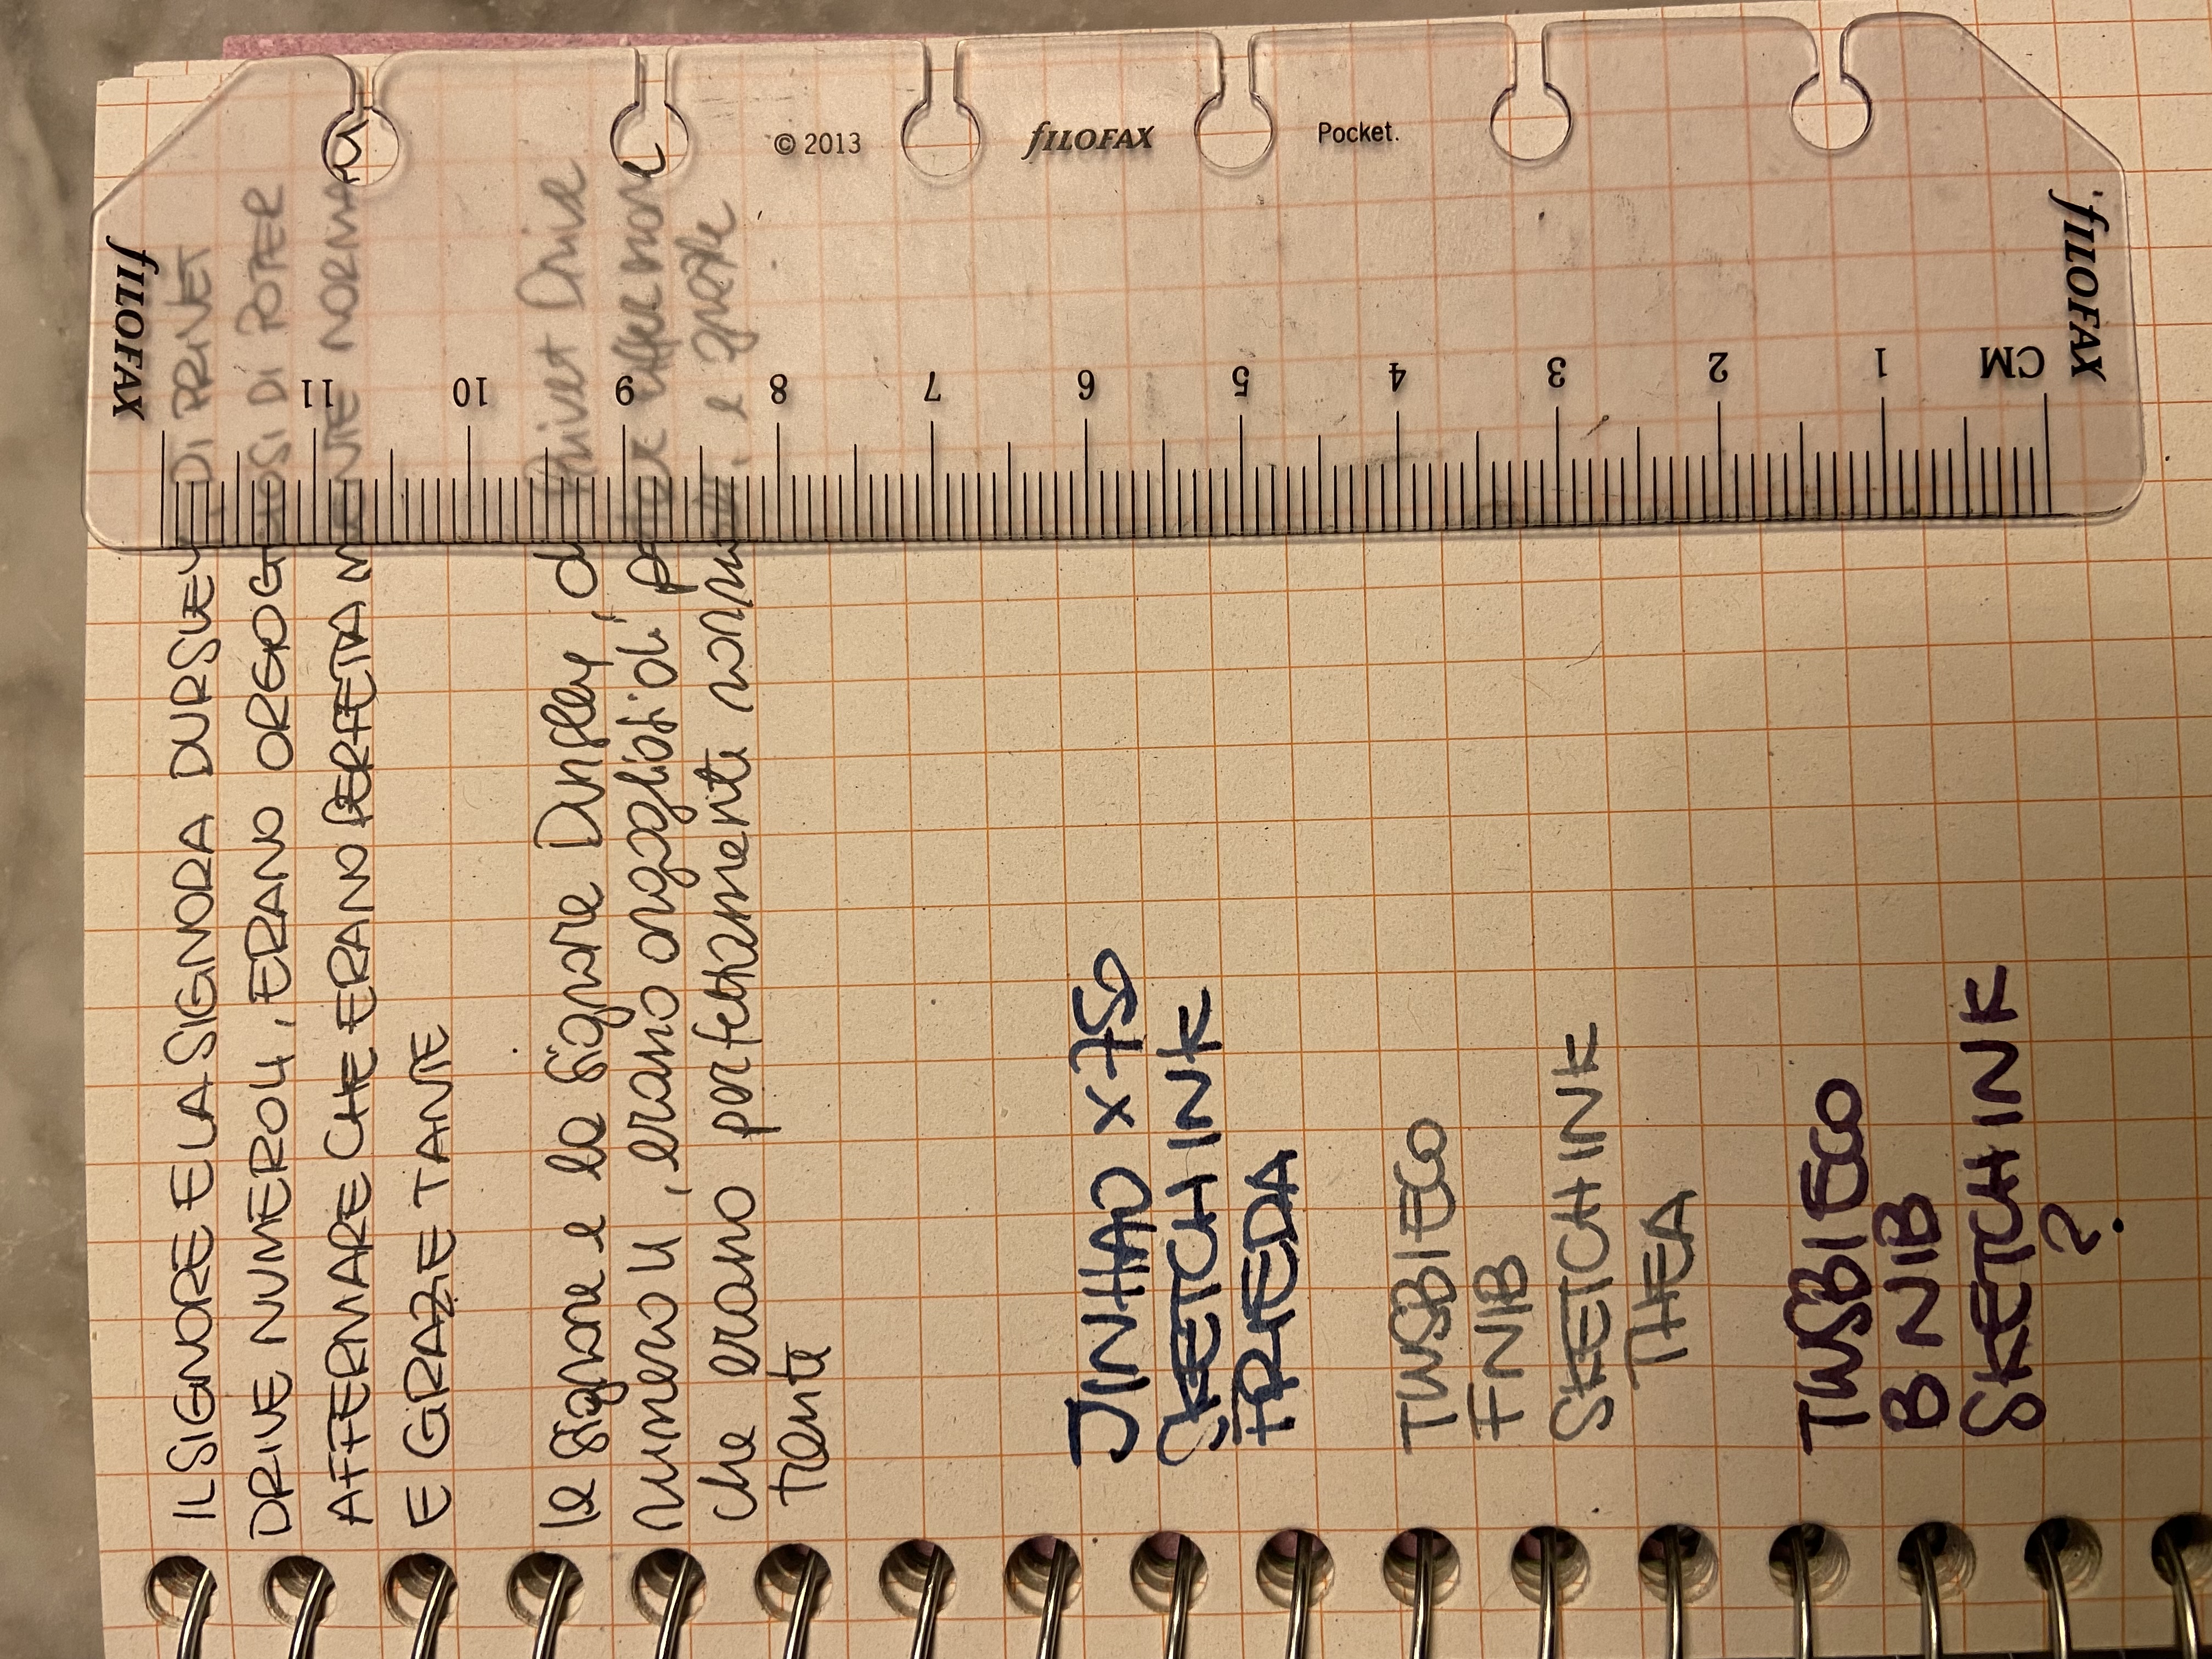 IL SIGNORE E LA SIGNORA DURSLEY, DI PRIVET
DRIVE NUMERO 4, ERANO ORGOGLIOSI DI POTER
AFFERMARE CHE ERANO PERFETTAMENTE NORMALI
E GRAZIE TANTE
Il signore e la signora Dursley, di Privet Drive
numero 4, erano orgogliosi di poter affermare
che erano perfettamente normali, e grazie
tante
JINHAO x750
SKETCH INK
FRIEDA
TWSBI ECO
F NIB
SKETCH INK
THEA
TWSBI ECO
B NIB
SKETCH INK
?
© 2013
fILOFAX
Pocket.
fILOFAX
fILOFAX
CM 1 2 3 4 5 6 7 8 9 10 11